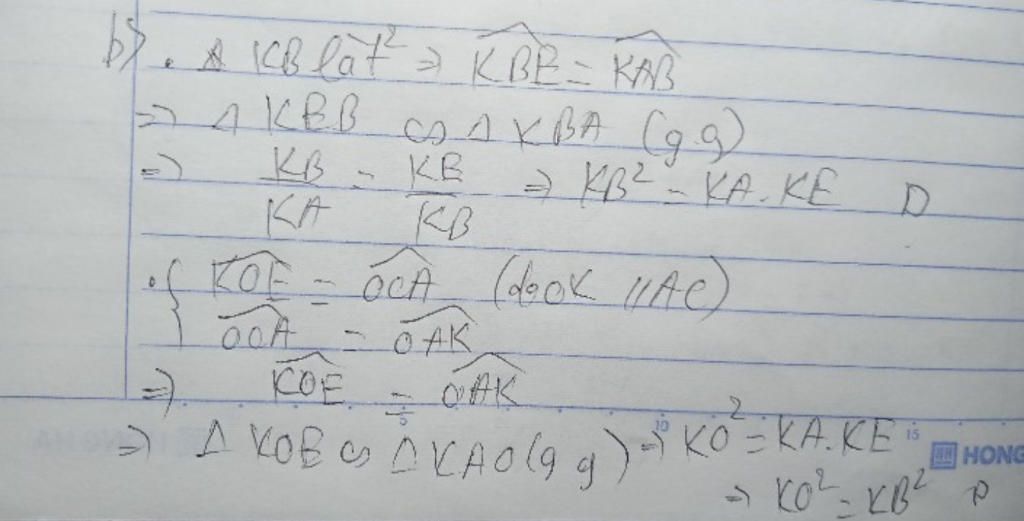 b) . KB là t² ⇒ \widehat{KBE} = \widehat{KAB}
⇒ Δ KEB ∽ Δ KBA (g.g)
⇒ KB/KA = KE/KB ⇒ KB² = KA.KE D
. { \widehat{KOE} = \widehat{OCA} (do OK // AC)
\widehat{OCA} = \widehat{OAK}
⇒ \widehat{KOE} = \widehat{OAK}
⇒ Δ KOE ∽ Δ KAO (g g) ⇒ KO² = KA.KE
⇒ KO² = KB²
5 10 15
HONG